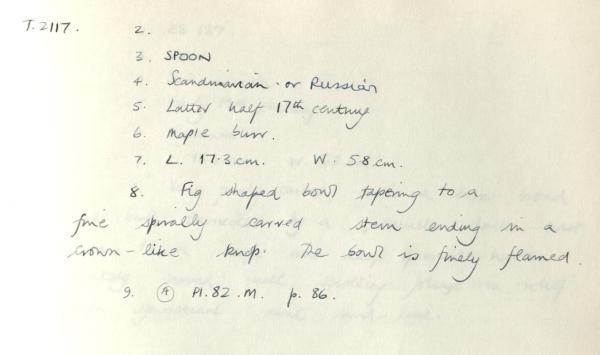 T.2117. 2.
3. SPOON
4. Scandinavian or Russian
5. Latter half 17th century
6. Maple burr.
7. L. 17.3 cm. W. 5.8 cm.
8. Fig shaped bowl tapering to a
fine spirally carved stem ending in a
crown-like knop. The bowl is finely flamed.
9. (A) Pl. 82. M. p. 86.